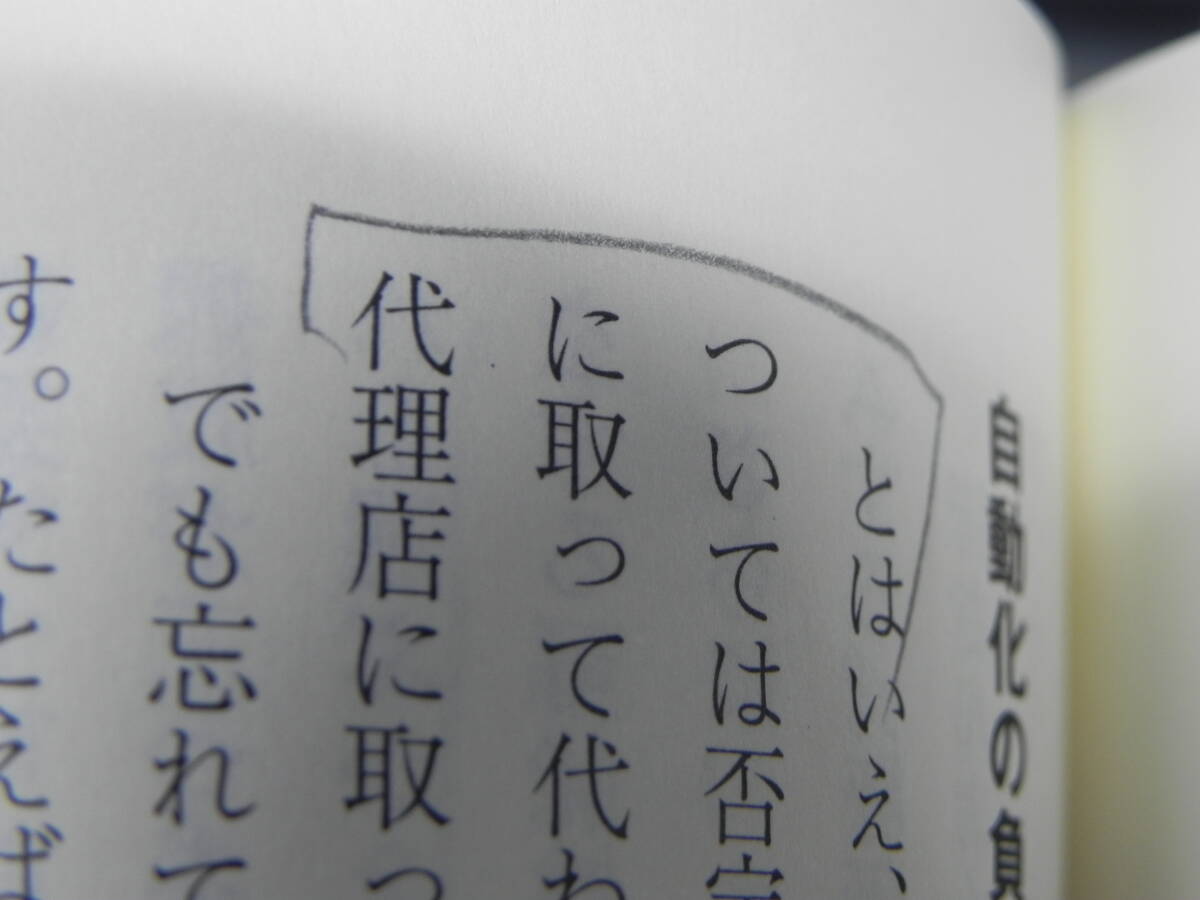 自動化の負
とはいえ、
ついては否定
に取って代わ
代理店に取っ
でも忘れて
す。たとえば